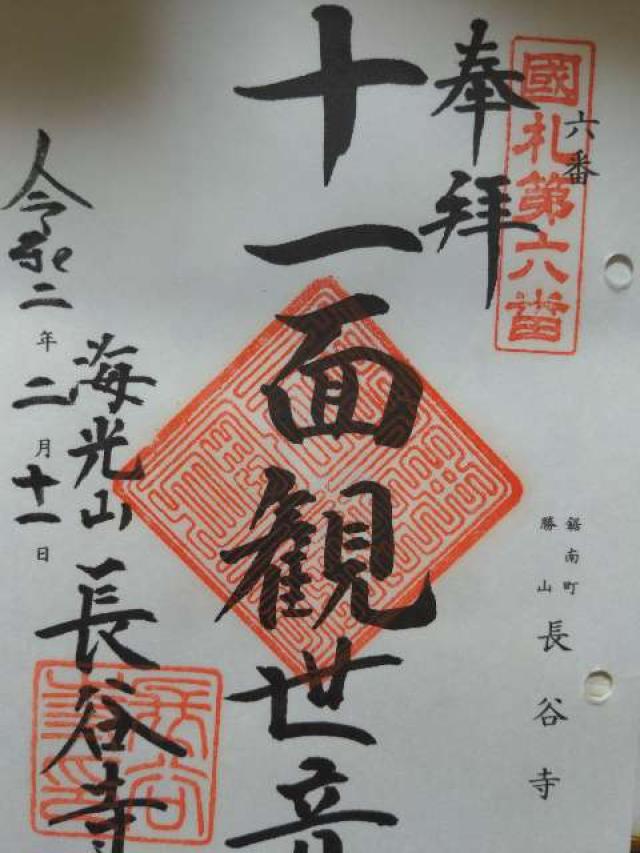 國札第六番
六番
奉拝
十一面観世音
海光山長谷寺
令和二年二月十一日
鋸南町
勝山
長谷寺